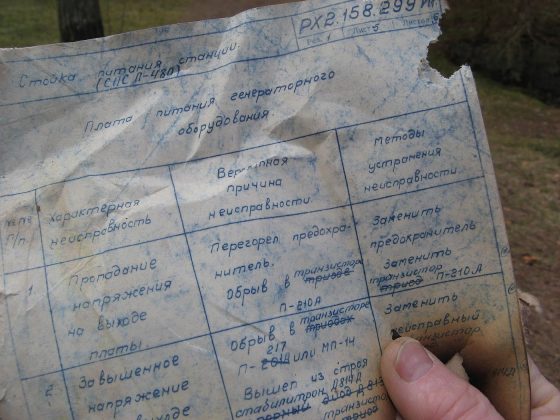 РХ2.158.299
Лист 5
Стойка питания станции.
(СПС П-480)
Плата питания генераторного
оборудования.
№№
п/п.
Характерная
неисправность
Вероятная
причина
неисправности.
Методы
устранения
неисправности.
1
Пропадание
напряжения
на выходе
платы.
Перегорел предохра-
нитель.
Обрыв в транзисторе
триоде
П-210А
Заменить
предохранитель
Заменить
транзистор
триод П-210А
2
Завышенное
напряжение
выходе
Обрыв в транзисторе
триодах
217
П-201А или МП-14
Вышел из строя
стабилитрон Д814Д
диод Д813
Заменить
неисправный
транзистор.